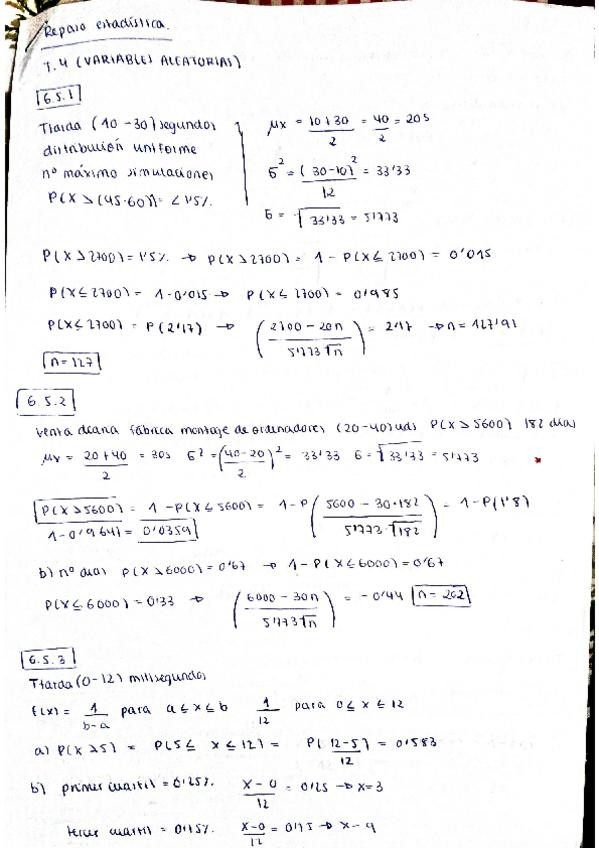 Repaso estadística.
T.4 (VARIABLES ALEATORIAS)
6.5.1
Ttarda (10-30) segundos
distribución uniforme
nº máximo simulaciones
P(X > (45·60)) = < 1'5%
μx = 10+30 / 2 = 40 / 2 = 20s
σ² = (30-10)² / 12 = 33'33
σ = √33'33 = 5'773
P(X > 2700) = 1'5% → P(X > 2700) = 1 - P(X ≤ 2700) = 0'015
P(X ≤ 2700) = 1 - 0'015 → P(X ≤ 2700) = 0'985
P(X ≤ 2700) = P(2'17) → (2700 - 20n / 5'773√n) = 2'17 → n = 127'91
n = 127
6.5.2
Venta diaria fábrica montaje de ordenadores (20-40) uds P(X > 5600) 182 días
μx = 20+40 / 2 = 30s σ² = (40-20 / 2)² = 33'33 σ = √33'33 = 5'773
P(X > 5600) = 1 - P(X ≤ 5600) = 1 - P(5600 - 30·182 / 5'773·√182) = 1 - P(1'8)
1 - 0'9641 = 0'0359
b) nº días P(X > 6000) = 0'67 → 1 - P(X ≤ 6000) = 0'67
P(X ≤ 6000) = 0'33 → (6000 - 30n / 5'773√n) = -0'44 n = 202
6.5.3
Ttarda (0-12) milisegundos
f(x) = 1 / b-a para a ≤ x ≤ b 1 / 12 para 0 ≤ x ≤ 12
a) P(X > 5) = P(5 ≤ x ≤ 12) = P(12-5 / 12) = 0'583
b) primer cuartil = 0'25% x-0 / 12 = 0'25 → x=3
tercer cuartil = 0'75% x-0 / 12 = 0'75 → x-9